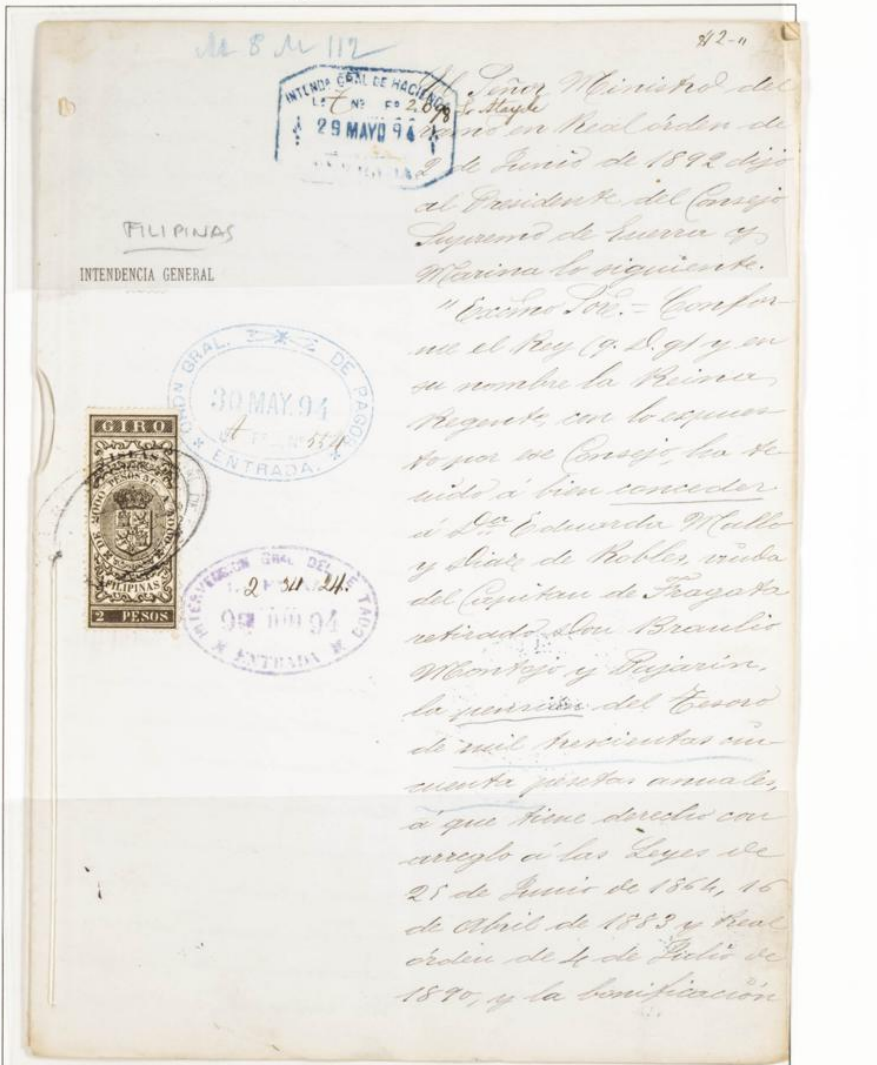 M 8 M 112
812-"
INTENDA GRAL DE HACIENDA
Lo 7 No Fo 2.098
29 MAYO 94
FILIPINAS
INTENDENCIA GENERAL
ORDN GRAL. DE PAGOS
30 MAY. 94
ENTRADA.
GIRO
ISLAS
FILIPINAS
2 PESOS
INTERVENCION GRAL DEL ESTADO
94
ENTRADA
El Señor Ministro del
ramo en Real órden de
2 de Junio de 1892 dijo
al Presidente del Consejo
Supremo de Guerra y
Marina lo siguiente.
"Excmo Sor. = Confor-
me el Rey (q. D. g) y en
su nombre la Reina
Regente, con lo expues-
to por ese Consejo, ha te
nido á bien conceder
á Da Eduarda Mallo
y Diaz de Robles, viuda
del Capitan de Fragata
retirado, Don Braulio
Montojo y Pajarin,
la pension del Tesoro
de mil trescientas cin
cuenta pesetas anuales,
á que tiene derecho con
arreglo á las Leyes de
25 de Junio de 1864, 16
de Abril de 1883 y Real
órden de 4 de Julio de
1890, y la bonificación